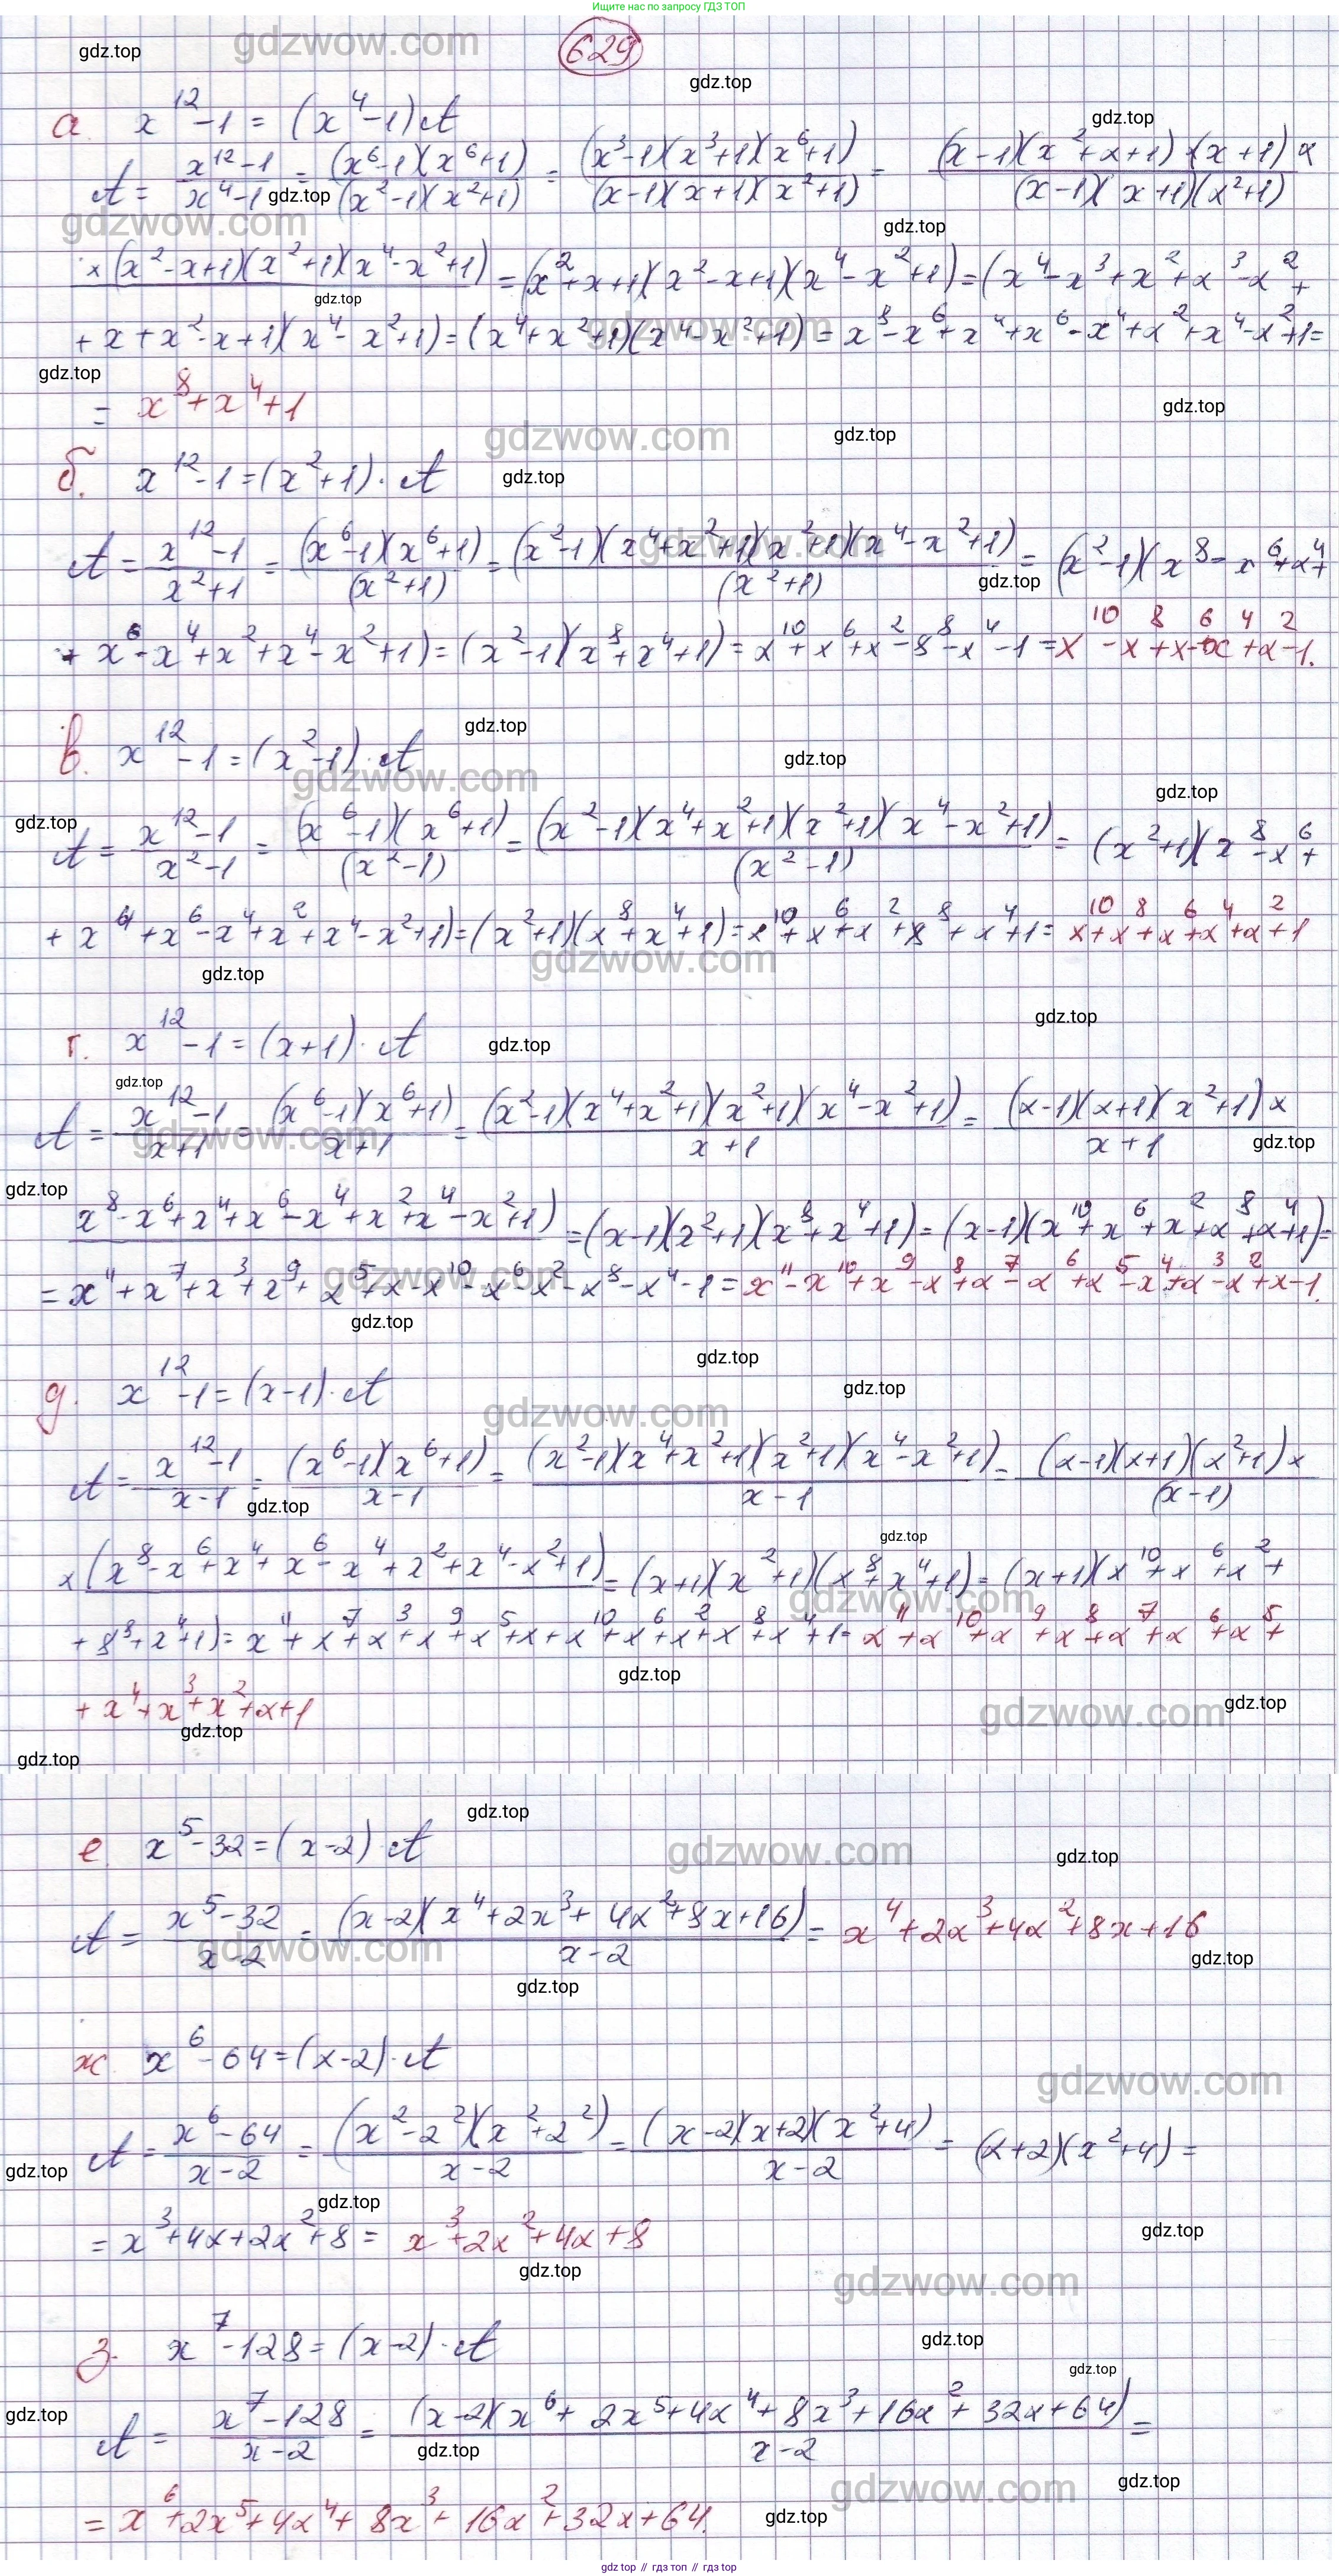 Ищите нас по запросу ГДЗ ТОП
629
а. x^12 - 1 = (x^4 - 1) A
A = (x^12 - 1)/(x^4 - 1) = ((x^6 - 1)(x^6 + 1))/((x^2 - 1)(x^2 + 1)) = ((x^3 - 1)(x^3 + 1)(x^6 + 1))/((x - 1)(x + 1)(x^2 + 1)) = ((x - 1)(x^2 + x + 1)·(x + 1) ×)/((x - 1)(x + 1)(x^2 + 1))
× (x^2 - x + 1)(x^2 + 1)(x^4 - x^2 + 1) = (x^2 + x + 1)(x^2 - x + 1)(x^4 - x^2 + 1) = (x^4 - x^3 + x^2 + x^3 - x^2 +
+ x + x^2 - x + 1)(x^4 - x^2 + 1) = (x^4 + x^2 + 1)(x^4 - x^2 + 1) = x^8 - x^6 + x^4 + x^6 - x^4 + x^2 + x^4 - x^2 + 1 =
= x^8 + x^4 + 1
б. x^12 - 1 = (x^2 + 1) · A
A = (x^12 - 1)/(x^2 + 1) = ((x^6 - 1)(x^6 + 1))/(x^2 + 1) = ((x^2 - 1)(x^4 + x^2 + 1)(x^2 + 1)(x^4 - x^2 + 1))/(x^2 + 1) = (x^2 - 1)(x^8 - x^6 + x^4 +
+ x^6 - x^4 + x^2 + x^4 - x^2 + 1) = (x^2 - 1)(x^8 + x^4 + 1) = x^10 + x^6 + x^2 - 8^8 - x^4 - 1 = x^10 - x^8 + x^6 - x^4 + x^2 - 1.
в. x^12 - 1 = (x^2 - 1) · A
A = (x^12 - 1)/(x^2 - 1) = ((x^6 - 1)(x^6 + 1))/(x^2 - 1) = ((x^2 - 1)(x^4 + x^2 + 1)(x^2 + 1)(x^4 - x^2 + 1))/(x^2 - 1) = (x^2 + 1)(x^8 - x^6 +
+ x^4 + x^6 - x^4 + x^2 + x^4 - x^2 + 1) = (x^2 + 1)(x^8 + x^4 + 1) = x^10 + x^6 + x^2 + x^8 + x^4 + 1 = x^10 + x^8 + x^6 + x^4 + x^2 + 1
г. x^12 - 1 = (x + 1) · A
A = (x^12 - 1)/(x + 1) = ((x^6 - 1)(x^6 + 1))/(x + 1) = ((x^2 - 1)(x^4 + x^2 + 1)(x^2 + 1)(x^4 - x^2 + 1))/(x + 1) = ((x - 1)(x + 1)(x^2 + 1) ×)/(x + 1)
x^8 - x^6 + x^4 + x^6 - x^4 + x^2 + x^4 - x^2 + 1) = (x - 1)(x^2 + 1)(x^8 + x^4 + 1) = (x - 1)(x^10 + x^6 + x^2 + x^8 + x^4 + 1) =
= x^11 + x^7 + x^3 + x^9 + x^5 + x - x^10 - x^6 - x^2 - x^8 - x^4 - 1 = x^11 - x^10 + x^9 - x^8 + x^7 - x^6 + x^5 - x^4 + x^3 - x^2 + x - 1.
д. x^12 - 1 = (x - 1) · A
A = (x^12 - 1)/(x - 1) = ((x^6 - 1)(x^6 + 1))/(x - 1) = ((x^2 - 1)(x^4 + x^2 + 1)(x^2 + 1)(x^4 - x^2 + 1))/(x - 1) = ((x - 1)(x + 1)(x^2 + 1) ×)/(x - 1)
× (x^8 - x^6 + x^4 + x^6 - x^4 + x^2 + x^4 - x^2 + 1) = (x + 1)(x^2 + 1)(x^8 + x^4 + 1) = (x + 1)(x^10 + x^6 + x^2 +
+ 8^8 + x^4 + 1) = x^11 + x^7 + x^3 + x^9 + x^5 + x + x^10 + x^6 + x^2 + x^8 + x^4 + 1 = x^11 + x^10 + x^9 + x^8 + x^7 + x^6 + x^5 +
+ x^4 + x^3 + x^2 + x + 1
е. x^5 - 32 = (x - 2) · A
A = (x^5 - 32)/(x - 2) = ((x - 2)(x^4 + 2x^3 + 4x^2 + 8x + 16))/(x - 2) = x^4 + 2x^3 + 4x^2 + 8x + 16
ж. x^6 - 64 = (x - 2) · A
A = (x^6 - 64)/(x - 2) = ((x^2 - 2^2)(x^2 + 2^2))/(x - 2) = ((x - 2)(x + 2)(x^2 + 4))/(x - 2) = (x + 2)(x^2 + 4) =
= x^3 + 4x + 2x^2 + 8 = x^3 + 2x^2 + 4x + 8
з. x^7 - 128 = (x - 2) · A
A = (x^7 - 128)/(x - 2) = ((x - 2)(x^6 + 2x^5 + 4x^4 + 8x^3 + 16x^2 + 32x + 64))/(x - 2) =
= x^6 + 2x^5 + 4x^4 + 8x^3 + 16x^2 + 32x + 64.
gdz top // гдз топ // gdz top